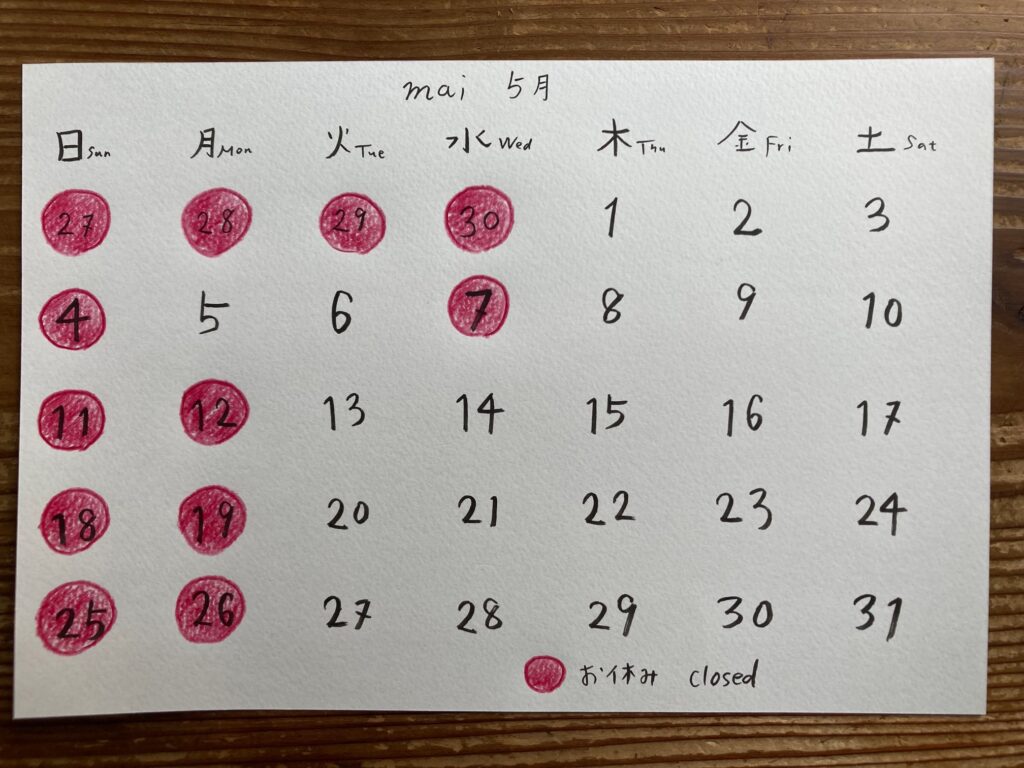 mai 5月
日Sun 月Mon 火Tue 水Wed 木Thu 金Fri 土Sat
27 28 29 30 1 2 3
4 5 6 7 8 9 10
11 12 13 14 15 16 17
18 19 20 21 22 23 24
25 26 27 28 29 30 31
お休み closed